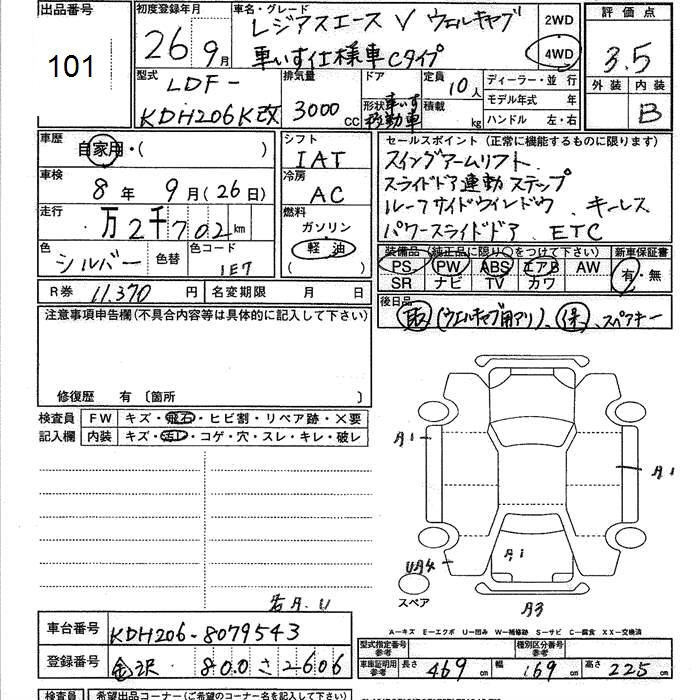 出品番号 初度登録年月 車名・グレード 評価点
101
26年 9月
レジアスエース V ウェルキャブ
車いす仕様車Cタイプ
2WD
4WD
3.5
型式 排気量 ドア 定員 ディーラー・並行 外装 内装
LDF-
KDH206K改 3000cc 形状 車いす移動車 10人 積載 kg
モデル年式 年
ハンドル 左・右
B
車歴 自家用・( )
シフト IAT
セールスポイント(正常に機能するものに限ります)
スイングアームリフト
スライドドア連動ステップ
ルーフサイドウインドウ キーレス
パワースライドドア ETC
車検 8年 9月(26日)
冷房 AC
走行 万2千702km
燃料 ガソリン
軽油
( )
色 シルバー 色替 色コード 1E7
装備品(純正品に限り○をつけて下さい) 新車保証書
PS PW ABS エアB AW 有・無
SR ナビ TV カワ
R券 11,370円 名変期限 月 日
後日品
取(ウェルキャブ用アリ)、保、スペアキー
注意事項申告欄(不具合内容等は具体的に記入して下さい)
修復歴 有〔箇所 〕
検査員 FW キズ・飛石・ヒビ割・リペア跡・×要
記入欄 内装 キズ・汚レ・コゲ・穴・スレ・キレ・破レ
A1
A1
A1
UA4
スペア
A3
A-キズ E-エクボ U-凹み W-補修跡 S-サビ C-腐食 XX-交換済
車台番号 KDH206-8079543
登録番号 金沢 800 さ 2606
型式指定番号 参考 種別区分番号 参考
車庫証明用 参考 長さ 469cm 幅 169cm 高さ 225cm
検査員 希望出品コーナー(ご希望のコーナー名を記入して下さい)